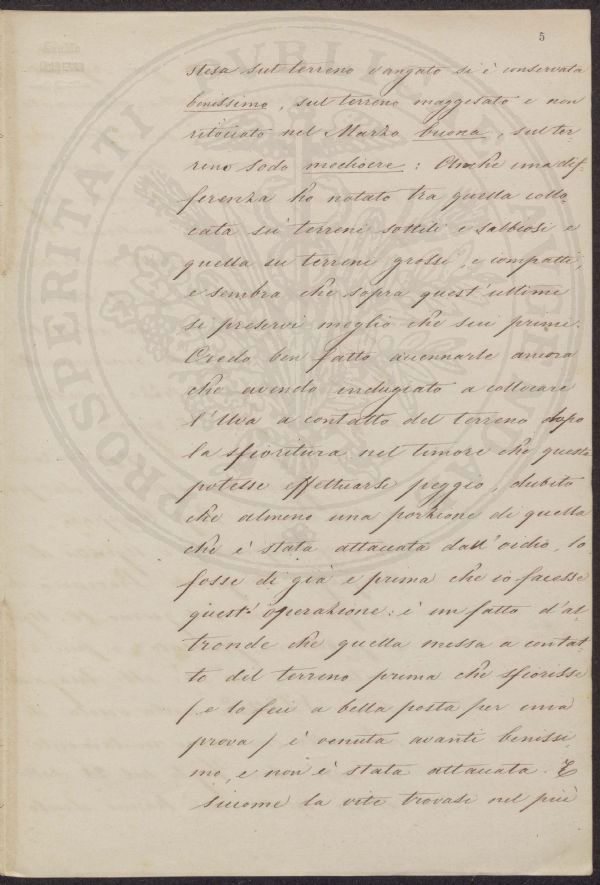 5
stesa sul terreno vangato si è conservata
benissimo, sul terreno maggesato e non
ritociato nel Marzo buona, sul ter-
reno sodo mediocre: Anche una dif-
ferenza ho notato tra quella collo-
cata su' terreni sottili e sabbiosi e
quella su terreni grossi, e compatti,
e sembra che sopra quest'ultimi
si preservi meglio che sui primi.
Credo ben fatto accennarle ancora
che avendo indugiato a collocare
l'Uva a contatto del terreno dopo
la sfioritura nel timore che questa
potesse effettuarsi peggio, dubito
che almeno una porzione di quella
che è stata attaccata dall'oidio, lo
fosse di già e prima che io facesse
quest'operazione: è un fatto d'al-
tronde che quella messa a contat-
to del terreno prima che sfiorisse
(e lo feci a bella posta per una
prova) è venuta avanti benissi-
mo, e non è stata attaccata. E
siccome la vite trovasi nel più
PROSPERITATI PUBLICAE AUGENDAE